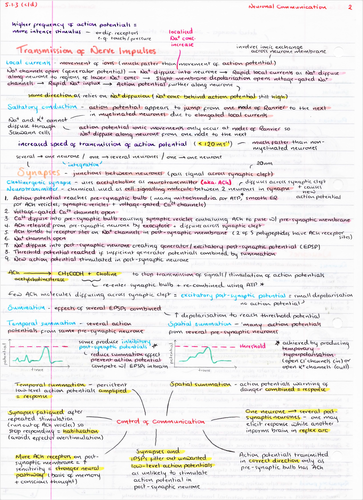 5.1.3 (ctd)
Neuronal Communication
2
Higher frequency of action potentials =
more intense stimulus
localised
Na⁺ conc
increase
involves ionic exchange
across neurone membrane
Transmission of Nerve Impulses
Local current - movement of ions (much faster than movement of action potential)
Na⁺ channels open (generator potential) → Na⁺ diffuse into neurone → Rapid local current as Na⁺ diffuse
along neurone to regions of lower Na⁺ conc → Slight membrane depolarisation opens voltage-gated Na⁺
channels → Rapid Na⁺ influx → Action potential further along neurone
same direction as relies on Na⁺ diffusion (Na⁺ conc. behind action potential still high)
Saltatory conduction - action potential appears to jump from one node of Ranvier to the next
in myelinated neurones due to elongated local current
Na⁺ and K⁺ cannot
diffuse through
Schwann cells
action potential ionic movements only occur at nodes of Ranvier so
they jump along neurone from one node to the next
increased speed of transmission of action potential (≤120 ms⁻¹)
much faster than non-
myelinated neurones
several → one neurone / one → several neurones / one → one neurone
20nm
Synapses - junctions between neurones (pass signal across synaptic cleft)
Cholinergic synapse - uses acetylcholine as neurotransmitter (aka. ACh)
Neurotransmitter - chemical used as cell signalling molecule between 2 neurones in synapse
diffuses across synaptic cleft
+ causes
new action
potential
1. Action potential reaches pre-synaptic bulb (many mitochondria for ATP, smooth ER
for ACh vesicles, synaptic vesicles + voltage-gated Ca²⁺ channels)
2. Voltage-gated Ca²⁺ channels open
3. Ca²⁺ diffuse into pre-synaptic bulb causing synaptic vesicles containing ACh to fuse w/ pre-synaptic membrane
4. ACh released from pre-synaptic neurones by exocytosis + diffuses across synaptic cleft
5. ACh binds to receptor sites on Na⁺ channels in post-synaptic membrane
(2 of 5 polypeptides have ACh receptor
site)
6. Na⁺ channels open
7. Na⁺ diffuse into post-synaptic neurone creating generator/excitatory post-synaptic potential (EPSP)
8. Threshold potential reached if sufficient generator potentials combined by summation
9. New action potential stimulated in post-synaptic neurone
ACh → CH₃COOH + Choline
acetylcholinesterase
to stop transmission of signal/stimulation of action potentials
re-enter synaptic bulb + re-combined using ATP
Few ACh molecules diffusing across synaptic cleft = excitatory post-synaptic potential = small depolarisation
no action potential
Summation - effects of several EPSPs combined
↑ depolarisation to reach threshold potential
Temporal summation - several action
potentials from same pre-synaptic neurone
Spatial summation - many action potentials
from several pre-synaptic neurones
some produce inhibitory
post-synaptic potentials *
reduce summation effect
prevent action potential
threshold
* achieved by producing
temporary
hyperpolarisation
Temporal summation - persistent
low-level action potentials amplified
= response
Spatial summation - action potentials warning of
danger combined = response
Synapses fatigued after
repeated stimulation
(run out of ACh vesicles) so
stop responding = habituation
Control of Communication
One neurone → several post-
synaptic neurones - one may
elicit response while another
informs brain in reflex arc
More ACh receptors on post-
synaptic membrane = ↑
sensitivity = stronger neural
pathway (basis of conscious
memory + thought)
Synapses and
IPSPs filter out unwanted
low-level action potentials as
unlikely to stimulate
action potential in
post-synaptic neurone
Action potentials transmitted
in correct direction only as
pre-synaptic bulb has ACh